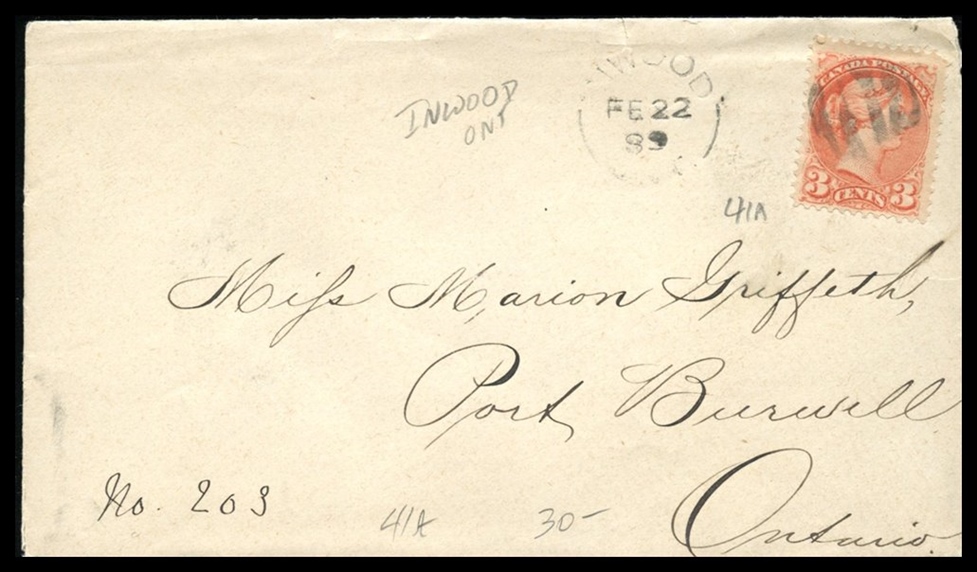 INWOOD
ONT
INWOOD
FE 22
89
CANADA POSTAGE
3 CENTS 3
41A
Miss Marion Griffeth,
Port Burwell
Ontario.
No. 203
41A 30-